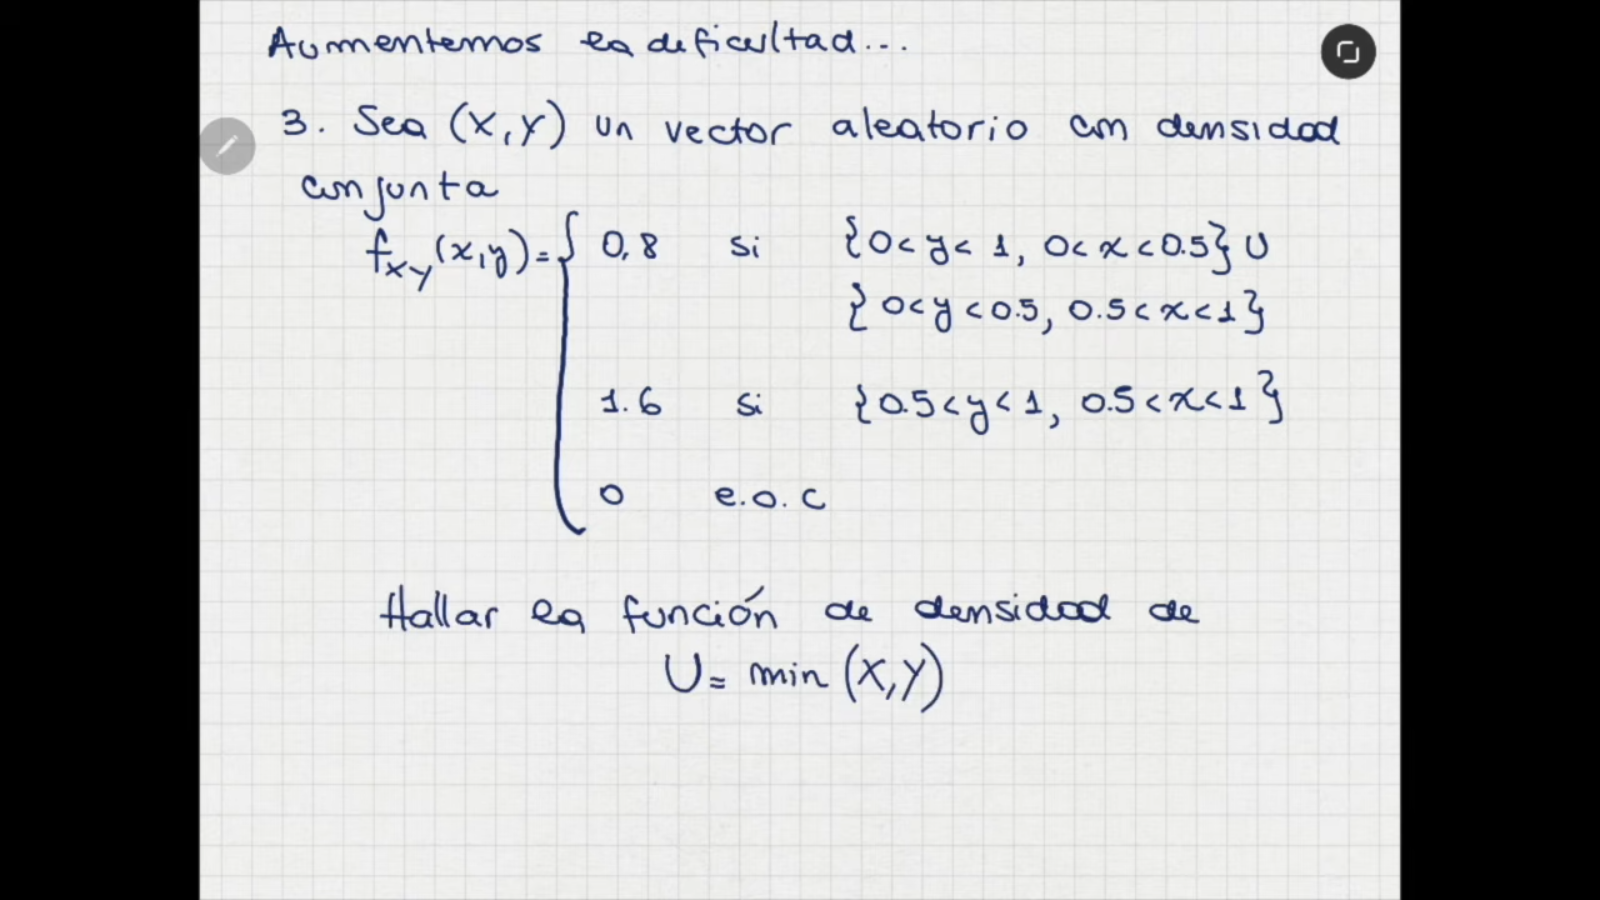 Aumentemos la dificultad...
3. Sea (X,Y) un vector aleatorio con densidad
conjunta
f_XY(x,y) = { 0,8 si {0<y<1, 0<x<0.5} U
{0<y<0.5, 0.5<x<1}
1.6 si {0.5<y<1, 0.5<x<1}
0 e.o.c
Hallar la función de densidad de
U = min (X,Y)